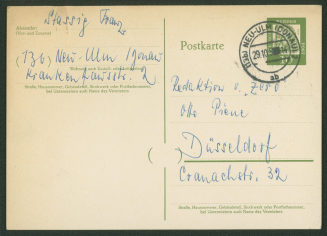 Stassig Franz
Absender:
(13b) Neu-Ulm/Donau
Krankenhausstr. 2
Straße, Hausnummer, Gebäudeteil, Stockwerk oder Postfachnummer,
bei Untermietern auch Name des Vermieters
Postkarte
(13b) NEU-ULM (DONAU)
29.10.
ab
Redaktion v. Zero
Otto Piene
Düsseldorf
Cranachstr. 32
Straße, Hausnummer, Gebäudeteil, Stockwerk oder Postfachnummer,
bei Untermietern auch Name des Vermieters